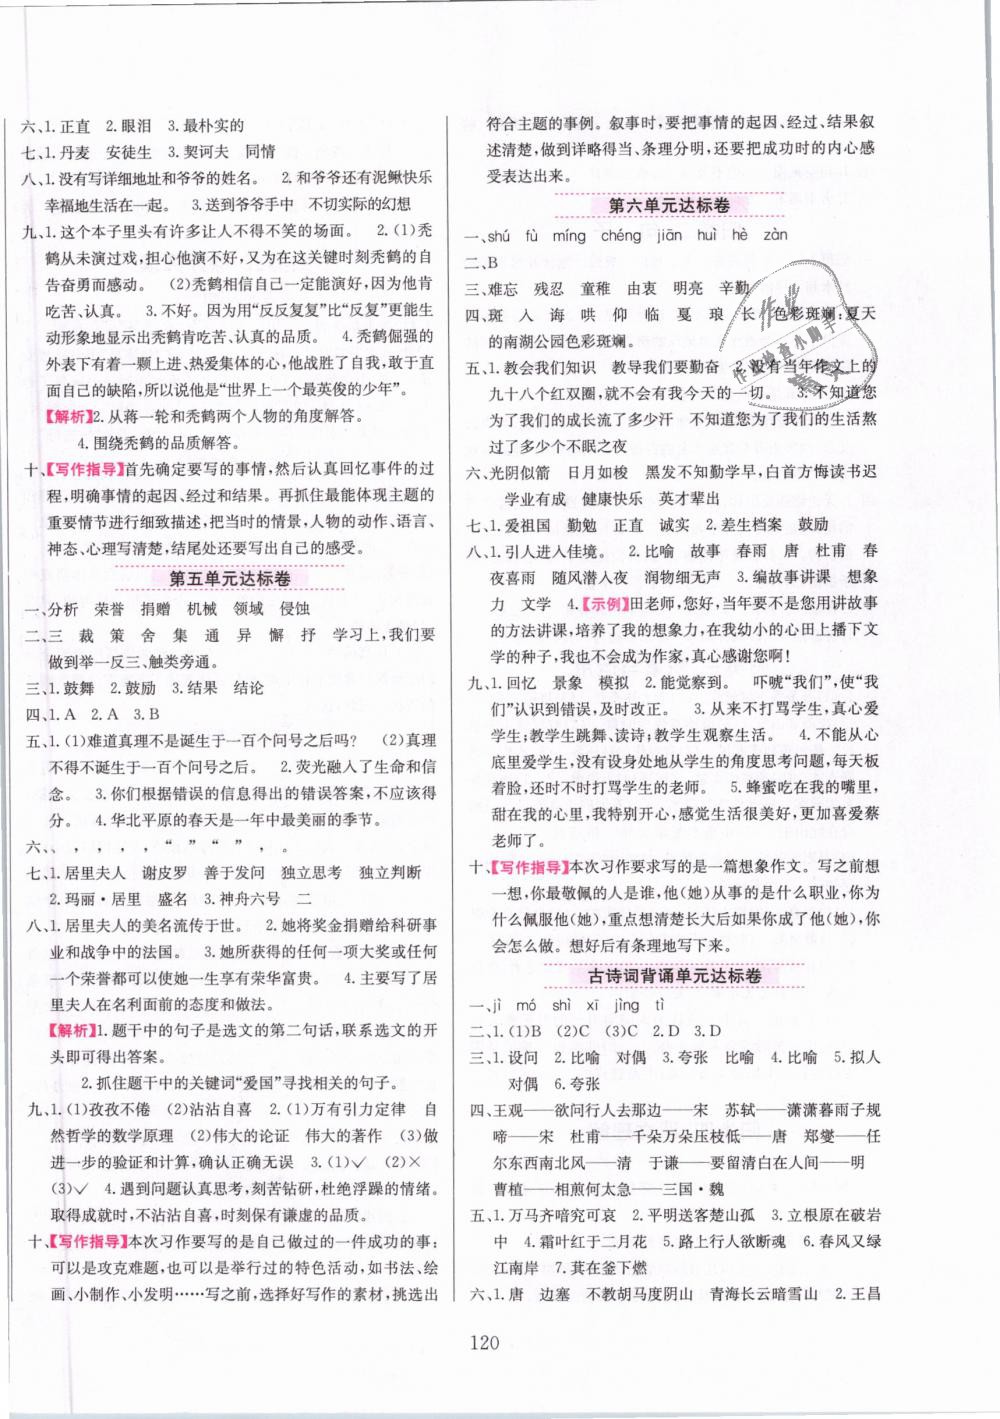 六、1.正直　2.眼泪　3.最朴实的
七、1.丹麦　安徒生　3.契诃夫　同情
八、1.没有写详细地址和爷爷的姓名。　2.和爷爷还有泥鳅快乐
幸福地生活在一起。　3.送到爷爷手中　不切实际的幻想
九、1.这个本子里头有许多让人不得不笑的场面。　2.(1)秃
鹤从未演过戏,担心他演不好,又为在这关键时刻秃鹤的自
告奋勇而感动。　(2)秃鹤相信自己一定能演好,因为他肯
吃苦、认真。　3.不好。因为用“反反复复”比“反复”更能生
动形象地显示出秃鹤肯吃苦、认真的品质。　4.秃鹤倔强的
外表下有着一颗上进、热爱集体的心,他战胜了自我,敢于
直面自己的缺陷,所以说他是“世界上一个最英俊的少年”。
【解析】2.从蒋一轮和秃鹤两个人物的角度解答。
4.围绕秃鹤的品质解答。
十、【写作指导】首先确定要写的事情,然后认真回忆事件的过
程,明确事情的起因、经过和结果。再抓住最能体现主题的
重要情节进行细致描述,把当时的情景,人物的动作、语言、
神态、心理写清楚,结尾处还要写出自己的感受。
第五单元达标卷
一、分析　荣誉　捐赠　机械　领域　侵蚀
二、三　裁　策　舍　集　通　异　懈　抒　学习上,我们要
做到举一反三、触类旁通。
三、1.鼓舞　2.鼓励　3.结果　结论
四、1.A　2.A　3.B
五、1.(1)难道真理不是诞生于一百个问号之后吗?　(2)真理
不得不诞生于一百个问号之后。　2.荧光融入了生命和信
念。　3.你们根据错误的信息得出的错误答案,不应该得
分。　4.华北平原的春天是一年中最美丽的季节。
六、、　,　,　,　,　“　”　“　”　,　。
七、1.居里夫人　谢皮罗　善于发问　独立思考　独立判断
2.玛丽·居里　盛名　3.神舟六号　二
八、1.居里夫人的美名流传于世。　2.她将奖金捐赠给科研事
业和战争中的法国。　3.她所获得的任何一项大奖或任何
一个荣誉都可以使她一生享有荣华富贵。　4.主要写了居
里夫人在名利面前的态度和做法。
【解析】1.题干中的句子是选文的第二句话,联系选文的开
头即可得出答案。
2.抓住题干中的关键词“爱国”寻找相关的句子。
九、1.(1)孜孜不倦　(2)沾沾自喜　2.(1)万有引力定律　自
然哲学的数学原理　(2)伟大的论证　伟大的著作　(3)做
进一步的验证和计算,确认正确无误　3.(1)✓　(2)×
(3)✓　4.遇到问题认真思考,刻苦钻研,杜绝浮躁的情绪。
取得成就时,不沾沾自喜,时刻保有谦虚的品质。
十、【写作指导】本次习作要写的是自己做过的一件成功的事;
可以是攻克难题,也可以是举行过的特色活动,如书法、绘
画、小制作、小发明……写之前,选择好写作的素材,挑选出
符合主题的事例。叙事时,要把事情的起因、经过、结果叙
述清楚,做到详略得当、条理分明,还要把成功时的内心感
受表达出来。
第六单元达标卷
一、shú　fù　míng　chéng　jiān　huì　hè　zàn
二、B
三、难忘　残忍　童稚　由衷　明亮　辛勤
四、斑　入　诲　哄　仰　临　戛　琅　长　色彩斑斓:夏天
的南湖公园色彩斑斓。
五、1.教会我们知识　教导我们要勤奋　2.没有当年作文上的
九十八个红双圈,就没有我今天的一切。　3.不知道您
为了我们的成长流了多少汗　不知道您为了我们的生活熬
过了多少个不眠之夜
六、光阴似箭　日月如梭　黑发不知勤学早,白首方悔读书迟
学业有成　健康快乐　英才辈出
七、1.爱祖国　勤勉　正直　诚实　2.差生档案　鼓励
八、1.引人进入佳境。　2.比喻　故事　春雨　唐　杜甫　春
夜喜雨　随风潜入夜　润物细无声　3.编故事讲课　想象
力　文学　4.【示例】田老师,您好,当年要不是您用讲故事
的方法讲课,培养了我的想象力,在我幼小的心田上播下文
学的种子,我也不会成为作家,真心感谢您啊!
九、1.回忆　景象　模拟　2.能觉察到。　吓唬“我们”,使“我
们”认识到错误,及时改正。　3.从来不打骂学生,真心爱
学生;教学生跳舞、读诗;教学生观察生活。　4.不能从心
底里爱学生,没有设身处地从学生的角度思考问题,每天板
着脸的、严厉的老师。　5.蜂蜜吃在我的嘴里,
甜在我的心里,我特别开心,感觉生活很美好,更加喜爱蔡
老师了。
十、【写作指导】本次习作要求写的是一篇想象作文。写之前想
一想,你最敬佩的人是谁,他(她)从事的是什么职业,你为
什么佩服他(她),重点想清楚长大后如果你成了他(她),你
会怎么做。想好后有条理地写下来。
古诗词背诵单元达标卷
一、jì　mó　shì　xī　jìng　tì
二、1.(1)B　(2)C　(3)C　2.D　3.D
三、1.设问　2.比喻　对偶　3.夸张　比喻　4.比喻　5.拟人
对偶　6.夸张
四、王观——欲问行人去那边——宋　苏轼——潇潇暮雨子规
啼——宋　杜甫——千朵万朵压枝低——唐　郑燮——任
尔东西南北风——清　于谦——要留清白在人间——明
曹植——相煎何太急——三国·魏
五、1.万马齐喑究可哀　2.平明送客楚山孤　3.立根原在破岩
中　4.霜叶红于二月花　5.路上行人欲断魂　6.春风又绿
江南岸　7.萁在釜下燃
六、1.唐　边塞　不教胡马度阴山　青海长云暗雪山　2.王昌
120